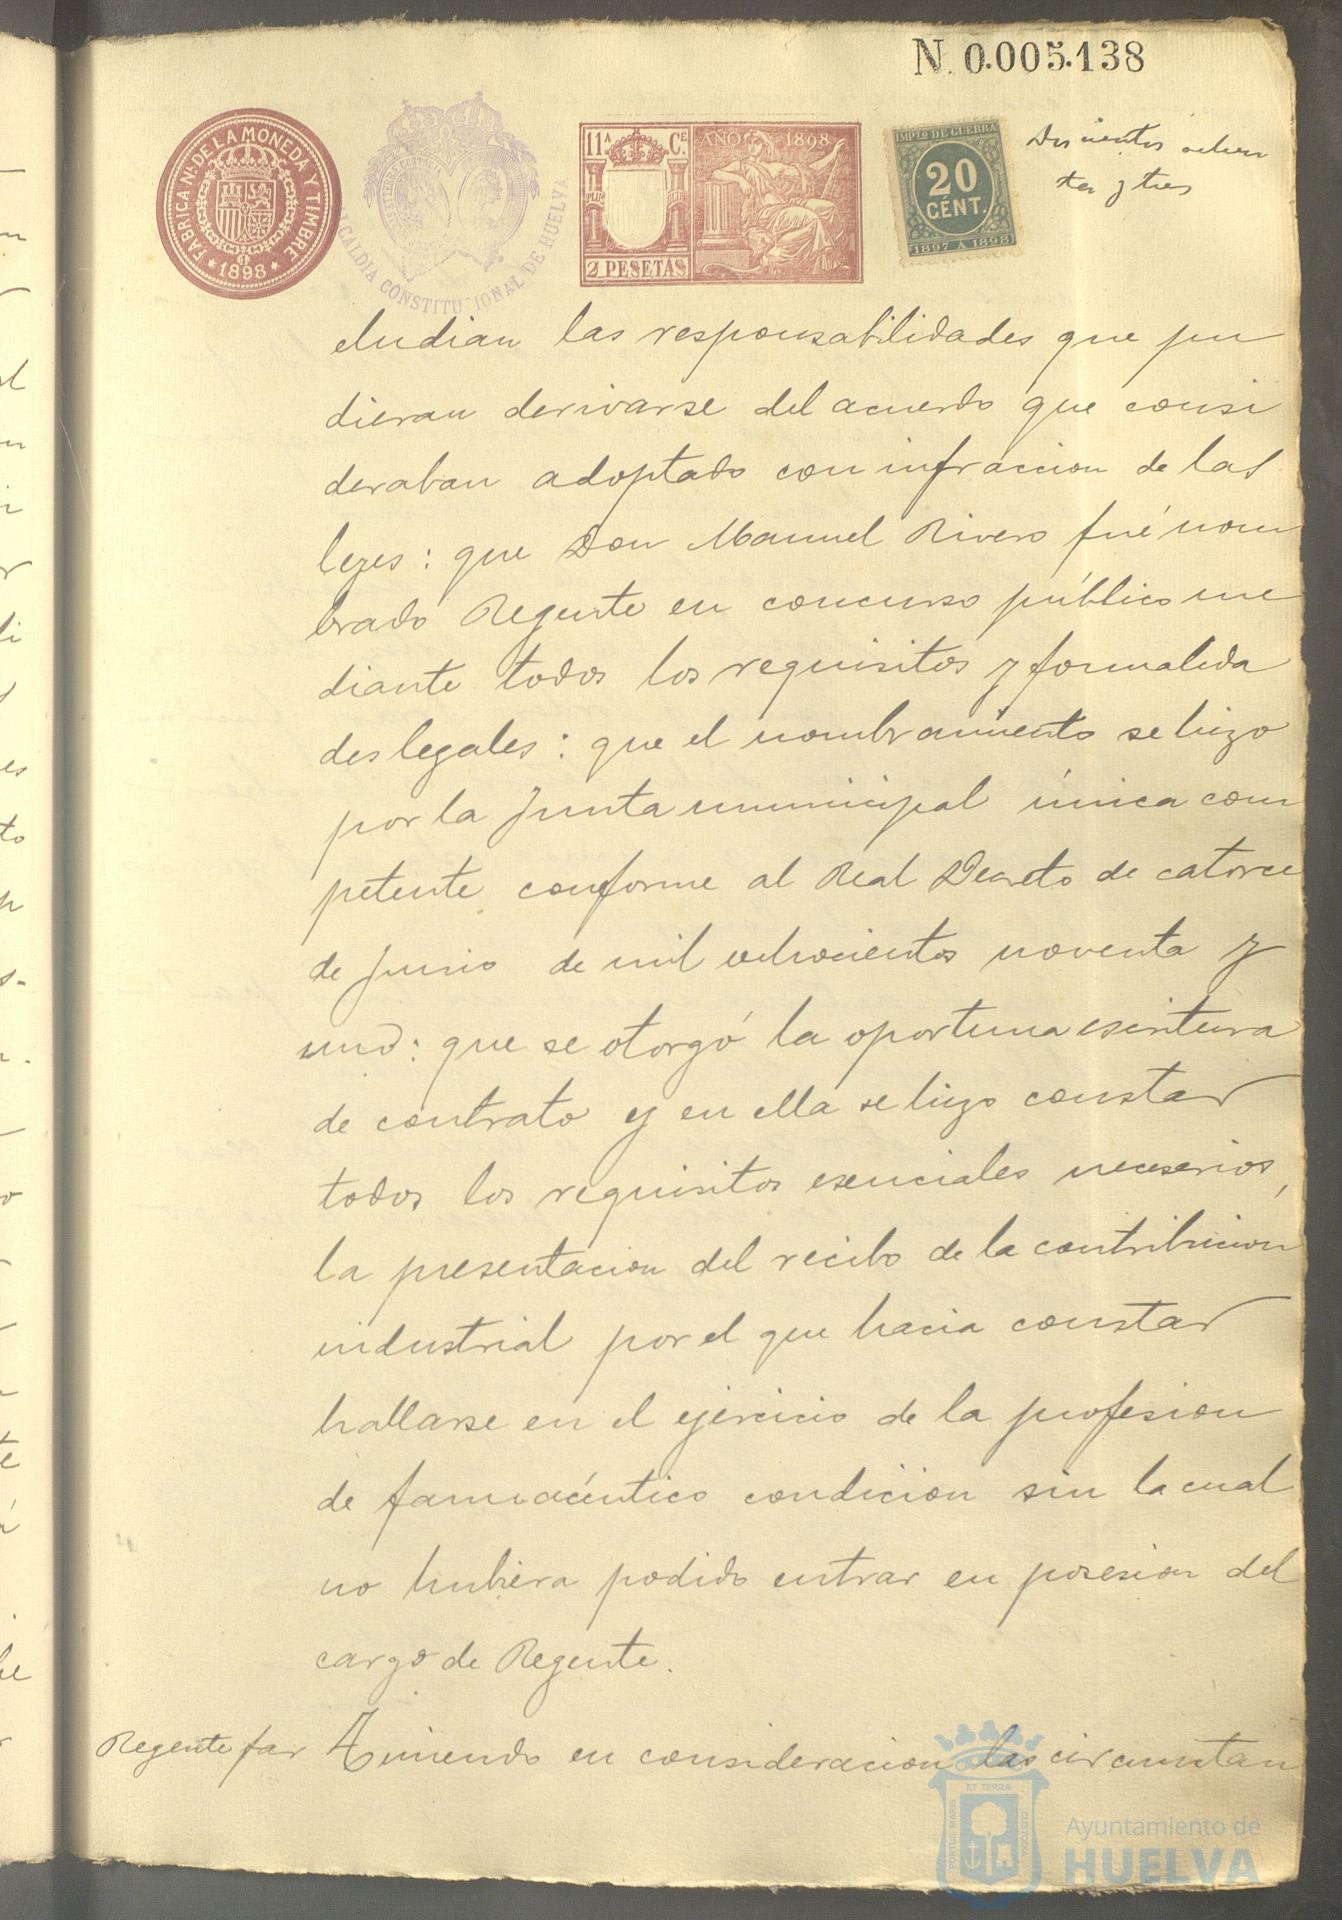 N. 0.005.138
FABRICA NAL. DE LA MONEDA Y TIMBRE
* 1898 *
ALCALDIA CONSTITUCIONAL DE HUELVA
11ª Cᴱ AÑO 1898
2 PESETAS
IMPTO DE GUERRA
20
CÉNT.
1897 A 1898
Doscientos ochen
ta y tres
eludian las responsabilidades que pu
dieran derivarse del acuerdo que consi
deraban adoptado con infraccion de las
leyes: que Don Manuel Rivero fué nom
brado Regente en concurso público me
diante todos los requisitos y formalida
des legales: que el nombramiento se hizo
por la Junta municipal única com
petente conforme al Real Decreto de catorce
de Junio de mil ochocientos noventa y
uno: que se otorgó la oportuna escritura
de contrato y en ella se hizo constar
todos los requisitos esenciales necesarios,
la presentacion del recibo de la contribucion
industrial por el que hacia constar
hallarse en el ejercicio de la profesion
de farmacéutico condicion sin la cual
no hubiera podido entrar en posesion del
cargo de Regente.
Regente far Teniendo en consideracion las circunstan
PORTUS MARIS ET TERRÆ CUSTODIA
Ayuntamiento de
HUELVA